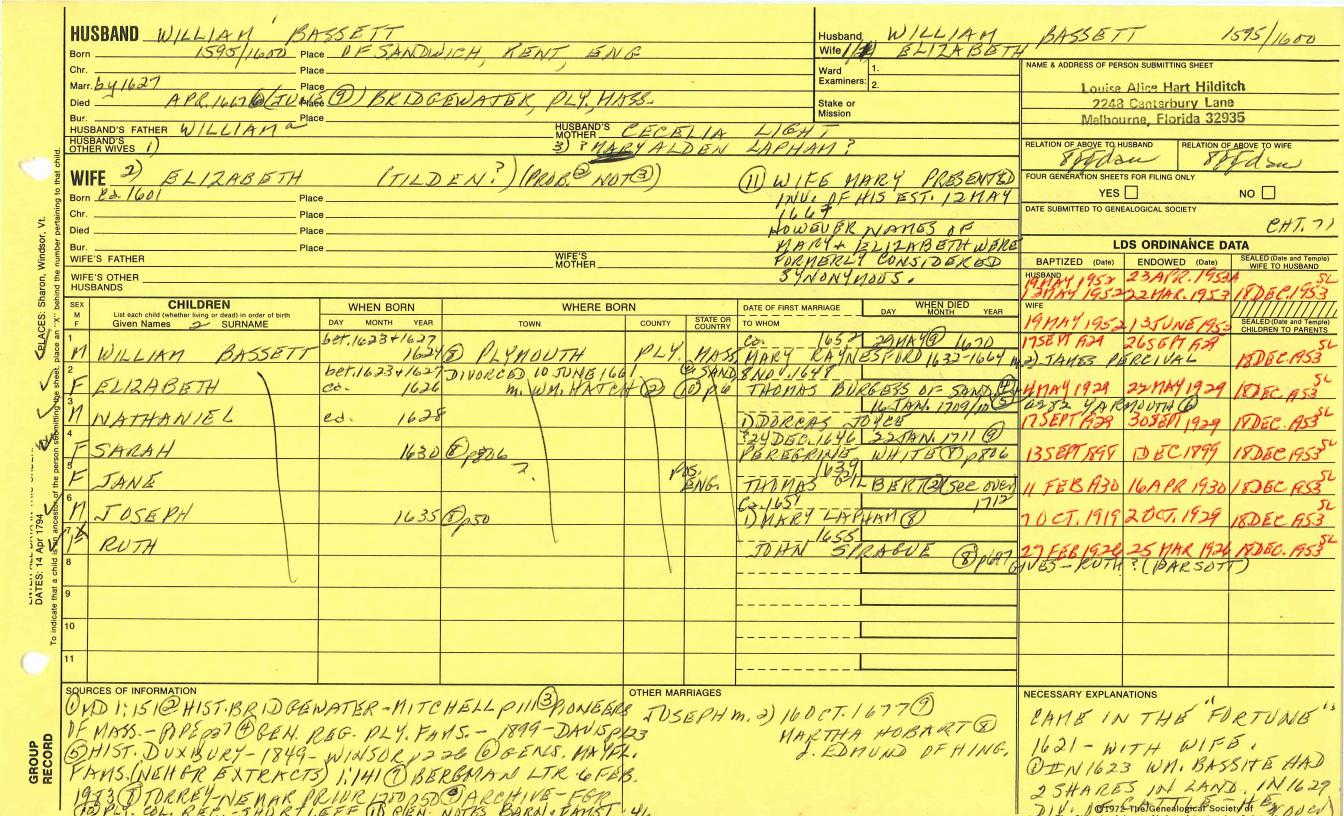 HUSBAND WILLIAM BASSETT
Born 1595/1600 Place OF SANDWICH, KENT, ENG
Chr. Place
Marr. by 1627 Place
Died APR. 1667 (JUNE ⑨) Place BRIDGEWATER, PLY, MASS.
Bur. Place
HUSBAND'S FATHER WILLIAM
HUSBAND'S MOTHER CECELIA LIGHT
HUSBAND'S OTHER WIVES 1)
3) ? MARY ALDEN LAPHAM?
Husband WILLIAM BASSETT 1595/1600
Wife ELIZABETH
Ward Examiners: 1.
2.
Stake or Mission
NAME & ADDRESS OF PERSON SUBMITTING SHEET
Louise Alice Hart Hilditch
2248 Canterbury Lane
Melbourne, Florida 32935
RELATION OF ABOVE TO HUSBAND
RELATION OF ABOVE TO WIFE
FOUR GENERATION SHEETS FOR FILING ONLY
YES NO
DATE SUBMITTED TO GENEALOGICAL SOCIETY
CHT. 71
WIFE 2) ELIZABETH (TILDEN?) (PROB. ② NOT ③)
Born ca. 1601 Place
Chr. Place
Died Place
Bur. Place
WIFE'S FATHER
WIFE'S MOTHER
WIFE'S OTHER HUSBANDS
⑪ WIFE MARY PRESENTED
INV. OF HIS EST. 12 MAY
1667
HOWEVER NAMES OF
MARY + ELIZABETH WERE
FORMERLY CONSIDERED
SYNONYMOUS.
LDS ORDINANCE DATA
BAPTIZED (Date) ENDOWED (Date) SEALED (Date and Temple) WIFE TO HUSBAND
HUSBAND
19 MAY 1952 23 APR. 1952 SL
22 MAR. 1953 18 DEC. 1953
WIFE
19 MAY 1952 13 JUNE 1952
SEALED (Date and Temple) CHILDREN TO PARENTS
SEX M F
CHILDREN
List each child (whether living or dead) in order of birth
Given Names SURNAME
WHEN BORN
DAY MONTH YEAR
WHERE BORN
TOWN COUNTY STATE OR COUNTRY
DATE OF FIRST MARRIAGE
TO WHOM
WHEN DIED
DAY MONTH YEAR
1 M WILLIAM BASSETT bet. 1623 + 1627 1624 PLYMOUTH PLY. MASS. ca. 1652 29 MAY 1670
MARY RAYNESFORD 1632-1664 m 2) JAMES PERCIVAL
17 SEPT 26 SEPT 18 DEC. 1953 SL
2 F ELIZABETH bet. 1623 + 1627 ca. 1626 DIVORCED 10 JUNE 1661 m. WM. HATCH ② ⑩ p6 SAND. 8 NOV. 1648
THOMAS BURGESS OF SAND.
4 MAY 1929 22 MAY 1929 18 DEC. 1953 SL
3 M NATHANIEL ca. 1628 16 JAN. 1709/10 YARMOUTH
DORCAS JOYCE
17 SEPT 1929 30 SEPT 1929 18 DEC. 1953 SL
4 F SARAH 1630 ⑧ p806 ? 24 DEC. 1646 22 JAN. 1711 ⑨
PEREGRINE WHITE p806
13 SEPT 1899 1 DEC 1899 18 DEC 1953 SL
5 F JANE ? POS. ENG. 1639
THOMAS GILBERT (SEC OVER)
11 FEB 1930 16 APR 1930 18 DEC 1953 SL
6 M JOSEPH 1635 p50 Ca. 1651 1712
MARY LAPHAM ⑧
7 OCT. 1919 2 OCT. 1929 18 DEC 1953 SL
7 F RUTH 1655
JOHN SPRAGUE ⑧ p697
27 FEB 1926 25 MAR 1926 18 DEC. 1953 SL
GIVES - RUTH ? (PARSOTT)
8
9
10
11
SOURCES OF INFORMATION
① MD 1:151 ② HIST. BRIDGEWATER - MITCHELL p111 ③ PIONEERS
OF MASS. - POPE p37 ④ GEN. REG. PLY. FAMS. - 1899 - DAVIS p23
⑤ HIST. DUXBURY - 1849 - WINSOR p226 ⑥ GENS. MAYFL.
FAMS. (NEHGR EXTRACTS) 1:141 ⑦ BERGMAN LTR 6 FEB.
1953 ⑧ TORREY NEMAR PRIOR 1700 p50 ⑨ ARCHIVE - FGR
⑩ PLY. COL. REC. - SHURTLEFF ⑪ GEN. NOTES BARN. FAMS.
OTHER MARRIAGES
JOSEPH m. 2) 16 OCT. 1677 ⑨
MARTHA HOBART ⑧
d. EDMUND OF HING.
NECESSARY EXPLANATIONS
CAME IN THE "FORTUNE"
1621 - WITH WIFE.
① IN 1623 WM. BASSITE HAD
2 SHARES IN LAND. IN 1629
DIV. OF CATTLE - HE
©1972 The Genealogical Society of
PLACES: Sharon, Windsor, Vt.
DATES: 14 Apr 1794
To indicate that a child is an ancestor of the person submitting the sheet, place an "X" behind the number pertaining to that child.
GROUP RECORD